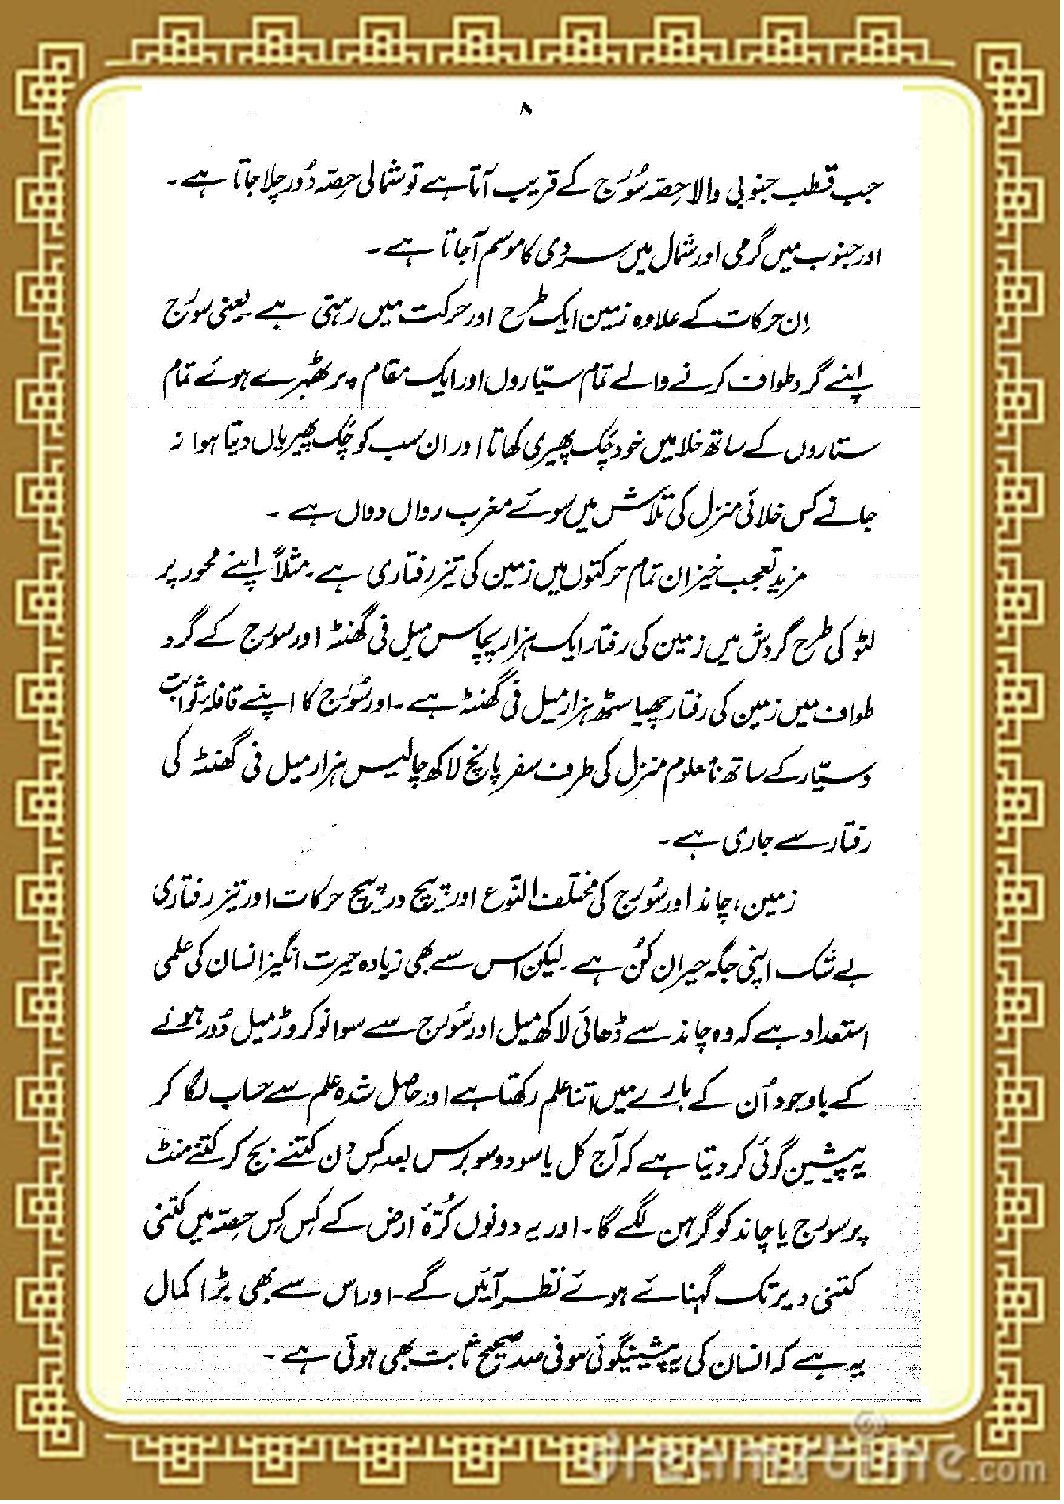 ۸
جب قطب جنوبی والا حصّہ سُورج کے قریب آتا ہے تو شمالی حِصّہ دُور چلا جاتا ہے۔
اور جنوب میں گرمی اور شمال میں سردی کا موسم آجاتا ہے۔
اِن حرکات کے علاوہ زمین ایک طرح اور حرکت میں رہتی ہے یعنی سُورج
اپنے گرد طواف کرنے والے تمام سیّاروں اور ایک مقام پر ٹھہرے ہوئے تمام
ستاروں کے ساتھ خلا میں خود چک پھیری کھاتا اور ان سب کو چک پھیریاں دیتا ہوا نہ
جانے کس خلائی منزل کی تلاش میں سوئے مغرب رواں دواں ہے۔
مزید تعجب خیز ان تمام حرکتوں میں زمین کی تیز رفتاری ہے۔ مثلاً اپنے محور پر
لٹو کی طرح گردش میں زمین کی رفتار ایک ہزار پچاس میل فی گھنٹہ اور سورج کے گرد
طواف میں زمین کی رفتار چھیاسٹھ ہزار میل فی گھنٹہ ہے۔ اور سُورج کا اپنے قافلہ ثوابت
و سیّار کے ساتھ نامعلوم منزل کی طرف سفر پانچ لاکھ چالیس ہزار میل فی گھنٹہ کی
رفتار سے جاری ہے۔
زمین، چاند اور سُورج کی مختلف النّوع اور پیچ در پیچ حرکات اور تیز رفتاری
بے شک اپنی جگہ حیران کُن ہے۔ لیکن اس سے بھی زیادہ حیرت انگیز انسان کی علمی
استعداد ہے کہ وہ چاند سے ڈھائی لاکھ میل اور سُورج سے سوا نو کروڑ میل دُور ہونے
کے باوجود اُن کے بارے میں اتنا علم رکھتا ہے اور حاصل شدہ علم سے حساب لگا کر
یہ پیشین گوئی کر دیتا ہے کہ آج کل یا سو دو سو برس بعد کس دن کتنے بج کر کتنے منٹ
پر سورج یا چاند کو گرہن لگے گا۔ اور یہ دونوں کُرّۂ ارض کے کِس کِس حِصّہ میں کتنی
کتنی دیر تک گہنائے ہوئے نظر آئیں گے۔ اور اس سے بھی بڑا کمال
یہ ہے کہ انسان کی یہ پیشینگوئی سو فی صد صحیح ثابت بھی ہوتی ہے۔
dreamstime.com